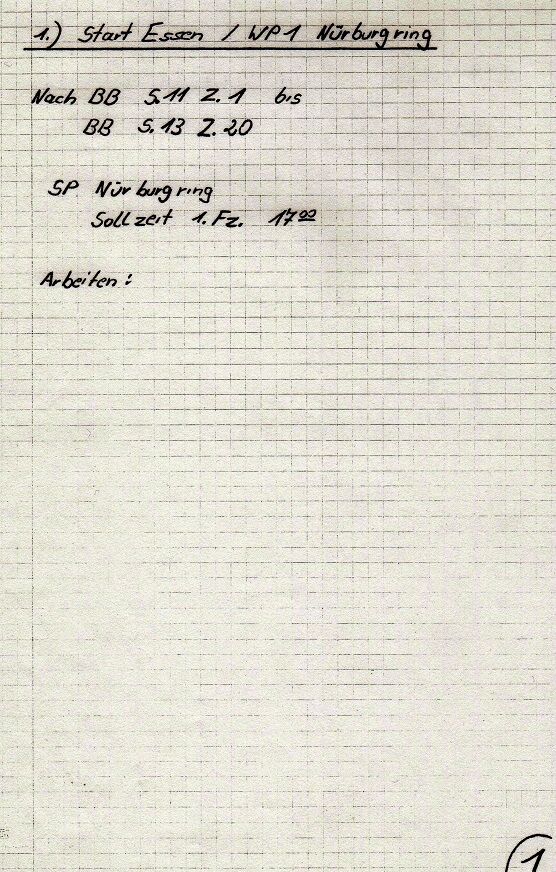 1.) Start Essen / WP1 Nürburgring
Nach BB S.11 Z.1 bis
BB S.13 Z.20
SP Nürburgring
Sollzeit 1.Fz. 17⁰⁰
Arbeiten:
1